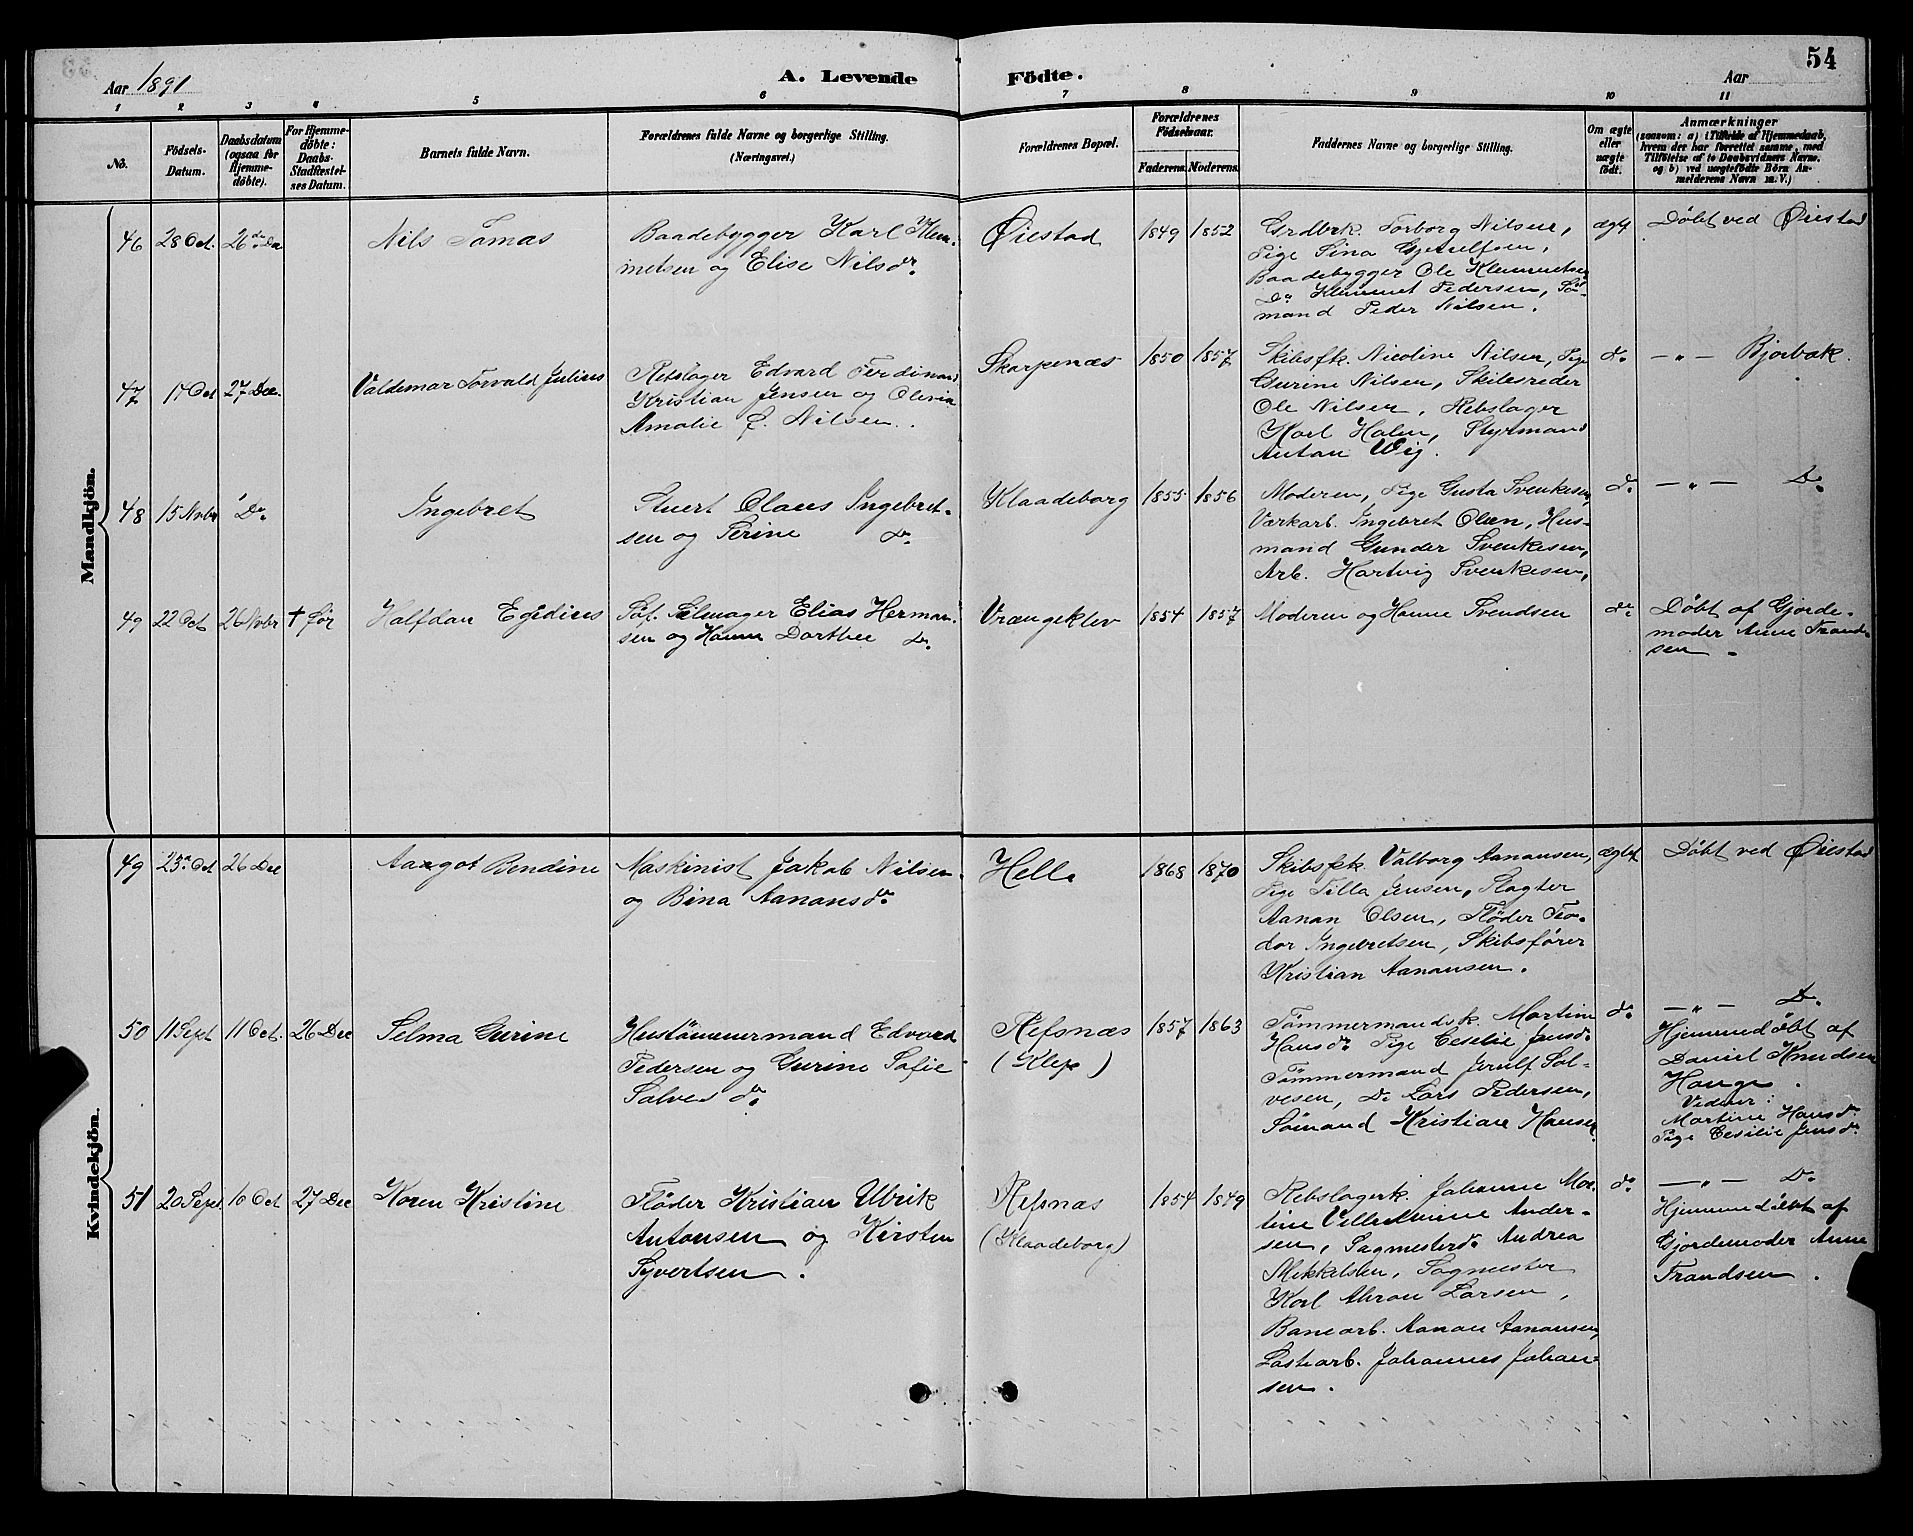 54
Aar 1891
A. Levende Födte.
Aar
1 2 3 4 5 6 7 8 9 10 11
No.
Födsels-
Datum.
Daabsdatum
(ogsaa for
Hjemme-
döbte).
For Hjemme-
döbte:
Daabs-
Stadfæstel-
ses Datum.
Barnets fulde Navn.
Forældrenes fulde Navne og borgerlige Stilling.
(Næringsvei.)
Forældrenes Bopæl.
Forældrenes
Födselsaar.
Faderens.
Moderens.
Faddernes Navne og borgerlige Stilling.
Om ægte
eller
uægte
födt.
Anmærkninger
(saasom: a) i Tilfælde af Hjemmedaab,
hvem der har forrettet samme, med
Tilföielse af to Daabsvidners Navne,
og b) ved uægtefödte Börn An-
melderens Navn m. V.)
Mandkjön.
46
28 Oct.
26de Dec
Nils Tomas
Baadebygger Karl Klem-
metsen og Elise Nilsdr.
Øiestad
1849
1852
Grdbrk. Torborg Nilsen,
Pige Sina Gjerulfsen,
Baadebygger Ole Klemmetsen
Do Klemmet Pedersen, Sö-
mand Peder Nilsen.
ægte
Döbt ved Øiestad
47
17 Oct
27 Dec.
Valdemar Torvald Julius
Rebslager Edvard Ferdinand
Kristian Jensen og Olevia
Amalie f. Nilsen.
Skarpenæs
1850
1857
Skibsfk. Nicoline Nilsen, Pige
Gurine Nilsen, Skibsreder
Ole Nilsen, Rebslager
Karl Holm, Styrmand
Anton Wig.
do
— " — Bjorbæk.
48
15 Nvbr
Do.
Ingebret
Stuert Olaus Ingebret-
sen og Serine do.
Klaadeborg
1855
1856
Moderen, Pige Gusta Svenkesen,
Værkarb. Ingebret Olsen, Hus-
mand Gunder Svenkesen,
Arb. Hartvig Svenkesen,
do
— " — Do.
49
22 Oct
26 Nvbr
† før
Halfdan Egidius
Seilmager Elias Herman-
sen og Hanne Dorthee Do.
Vrængeklev
1854
1857
Moderen og Hanne Svendsen
do
Döbt af Gjorde-
moder Anne Trand-
sen
Kvindekjön.
49
25 Oct
26 Dec
Aagot Bendine
Maskinist Jakob Nilsen
og Bina Aanonsdr.
Helle
1868
1870
Skibsfk. Valborg Aanonsen,
Pige Tilla Jensen, Slagter
Aanon Olsen, Flöder Teo-
dor Ingebretsen, Skibsförer
Kristian Aanonsen.
ægte
Döbt ved Øiestad
50
11 Sept
11 Oct.
26 Dec
Selma Gurine
Hustömmermand Edvard
Pedersen og Gurine Sofie
Salvesdr.
Refsnæs
(Klep)
1857
1863
Tömmermandsk. Martine
Hansdr. Pige Cesilie Jensdr.
Tömmermand Jerulf Sal-
vesen, Do Lars Pedersen,
Sömand Kristian Hansen
do
— " — Do.
Hjemmedöbt af
Daniel Knudsen
Hauge.
Vidner:
Martine Hansdr.
Pige Cesilie Jensdr.
51
20 Sept
10 Oct
27 Dec
Karen Kristine
Flöder Kristian Ulrik
Antonsen og Kirsten
Syvertsen.
Refsnæs
(Klaadeborg)
1854
1849
Rebslagerk. Johanne Mar-
tine Ander-
sen, Sagmesterdr. Andrea
Mikkelsen, Sagmester
Karl Larsen,
Banearb. Aanon Aanonsen,
Lostearb. Johannes Johan-
sen.
do
— " — Do.
Hjemmedöbt af
Gjordemoder Anne
Trandsen.